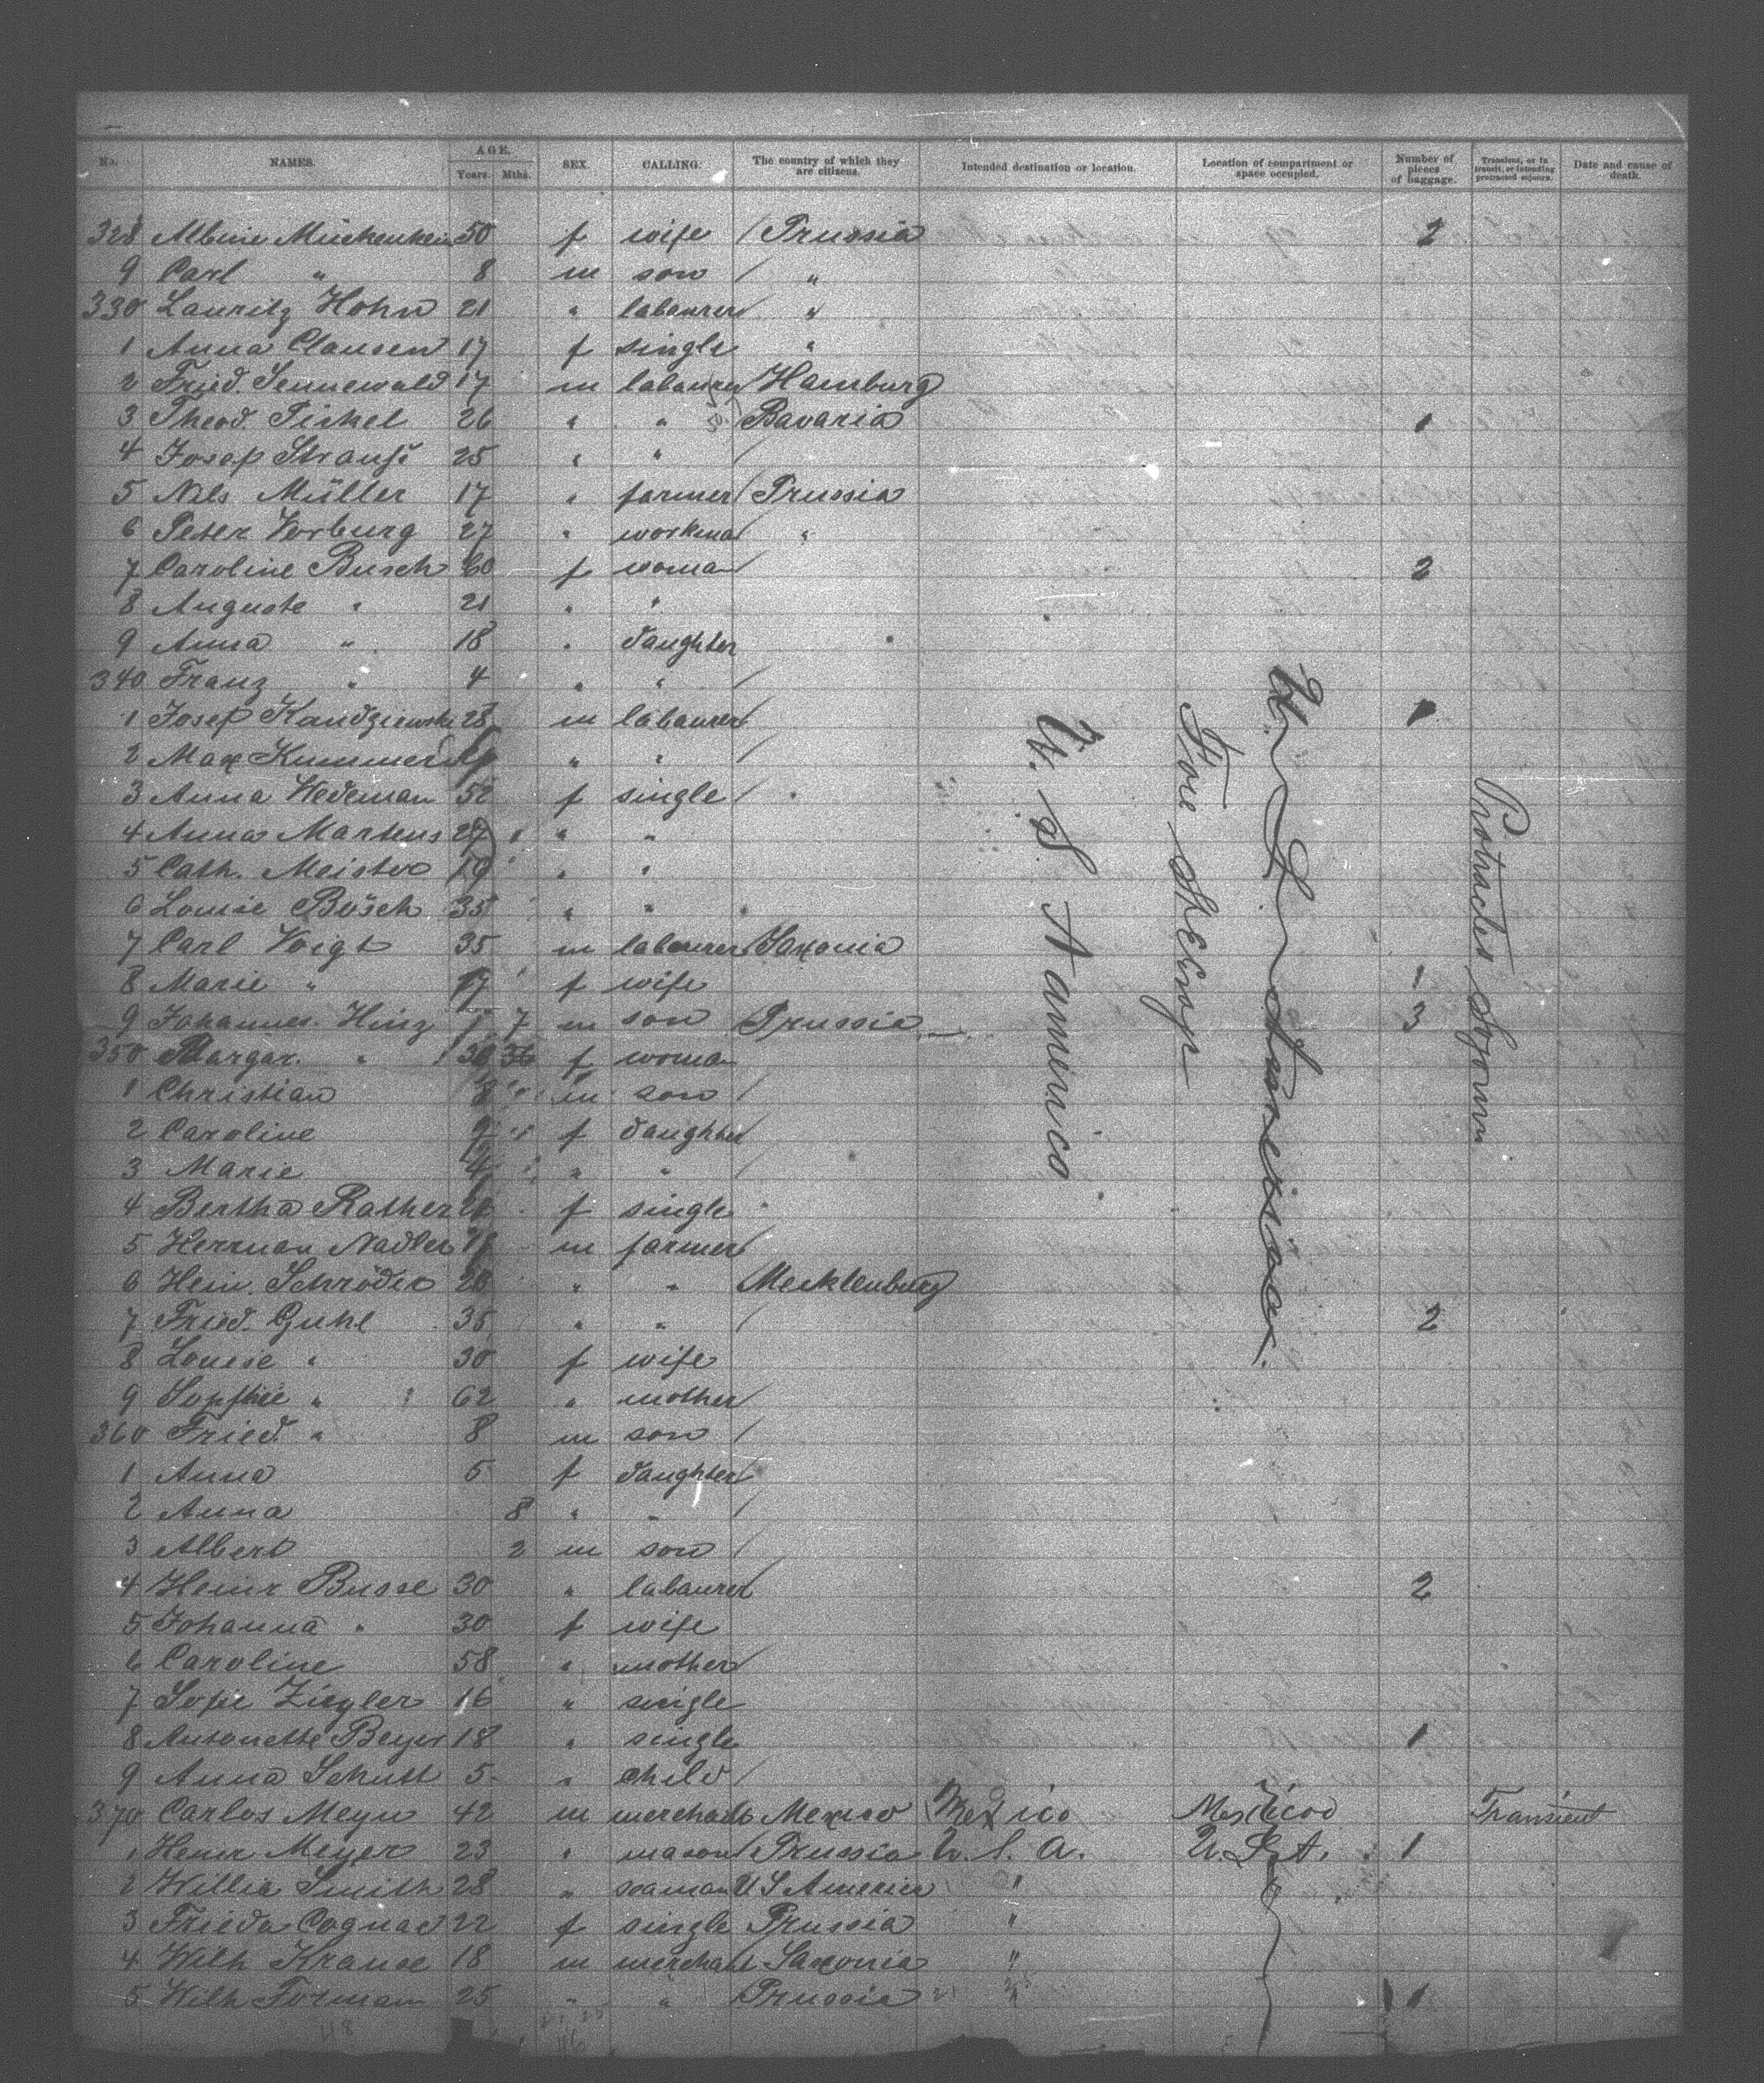 No. NAMES. AGE. Years. Mths. SEX. CALLING. The country of which they are citizens. Intended destination or location. Location of compartment or space occupied. Number of pieces of baggage. Transient, or in transit, or intending protracted sojourn. Date and cause of death.
328 Albine 50 f wife / Prussia 2
9 Carl " 8 m son / "
330 Lauritz Hohn 21 " labaurer "
1 Anna Clausen 17 f single "
2 Fried. Sennewald 17 m labaurer Hamburg
3 Theod. Pickel 26 " " Bavaria 1
4 Josep Strauß 25 " " /
5 Nils Müller 17 " farmer / Prussia
6 Peter Vorburg 27 " workman "
7 Caroline Busch 60 f woman / 2
8 Auguste " 21 " "
9 Anna " 18 " daughter
340 Franz " 4 " " /
1 Josep 28 m labaurer 1
2 Max Kummer " " /
3 Anna Wedeman 52 f single /
4 Anna Martens 27 " "
5 Cath. Meister 19 " "
6 Louise Bösch 35 " "
7 Carl Voigt 35 m labaurer Saxonia
8 Marie " f wife 1
9 Johannes Hinz 7 m son Prussia 3
350 Margar. " f woman
1 Christian 8 m son /
2 Caroline f daughter
3 Marie 4 " " /
4 Bertha Rather f single
5 Herman Nadler m farmer
6 Hein. Schröder 28 " " Mecklenburg
7 Fried. Guhl 35 " " / 2
8 Louise " 30 f wife
9 Sopthie " 62 " mother /
360 Fried. " 8 m son /
1 Anna 5 f daughter
2 Anna 8 " " /
3 Albert 2 m son /
4 Heinr Busse 30 " labaurer 2
5 Johanna " 30 f wife
6 Caroline 58 " mother /
7 Sofie Ziegler 16 " single
8 Antonette Beyer 18 " single 1
9 Anna Schutt 5 " child /
370 Carlos Meyn 42 m merchant Mexico Mexico Mexico Transient
1 Heinr Meyer 23 " mason Prussia U. S. A. U.S.A. 1
2 Willia Smith 28 " seaman U S America "
3 Frieda Cognac 22 f single Prussia "
4 Wilh Krause 18 m merchant Saxonia "
5 Wilh Forman 25 " " Prussia " 1
U. S America
Fore Steerage
Protracted Sojourn